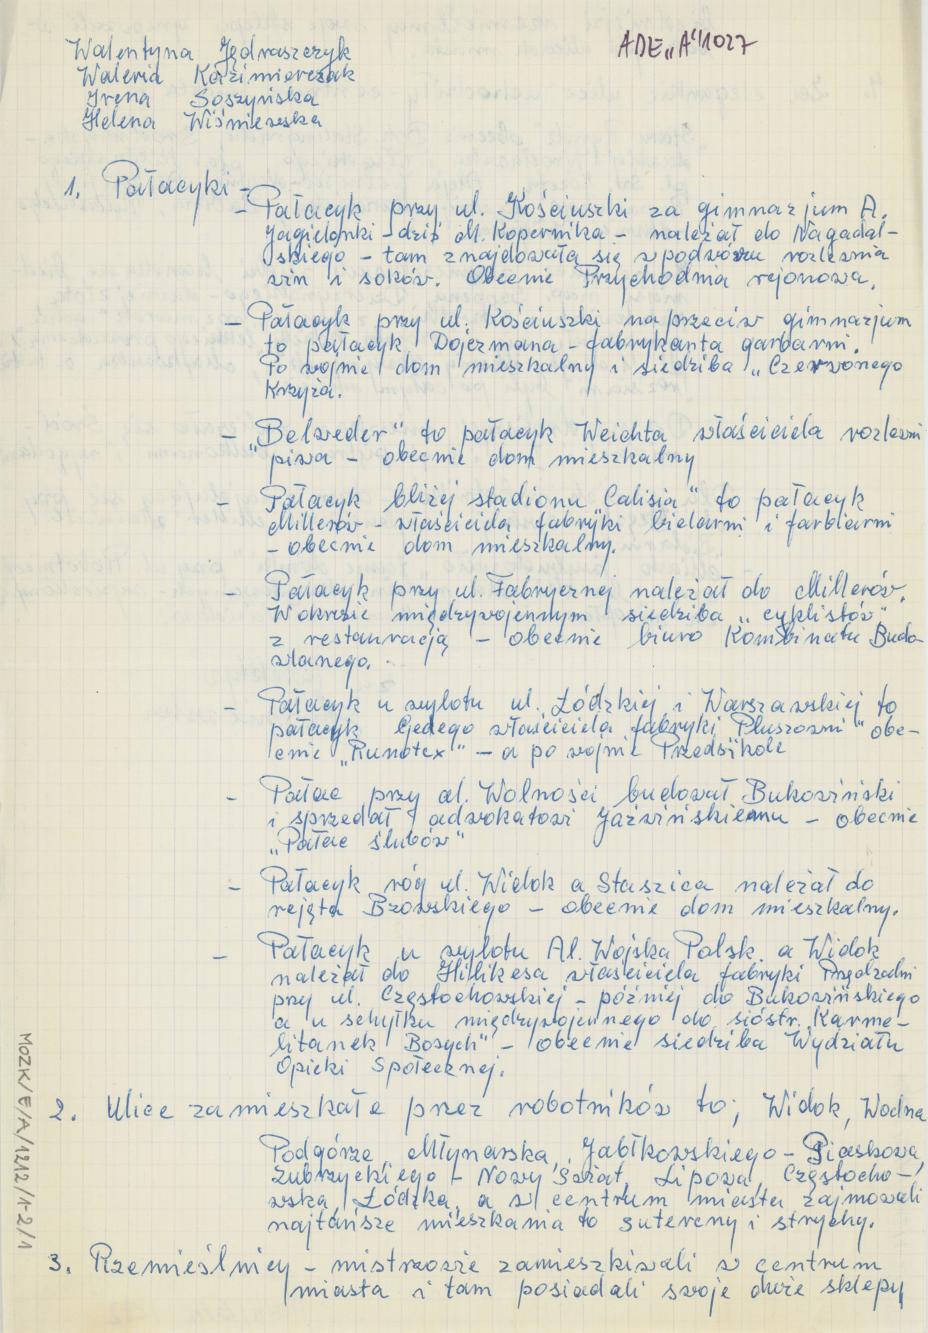 Walentyna Jędraszczyk
Waleria Kaźmierczak
Irena Soszyńska
Helena Wiśniewska
ADE„A"/1027
1. Pałacyki -
- Pałacyk przy ul. Kościuszki za gimnazjum A.
Jagielonki - dziś M. Kopernika - należał do Nagadal-
skiego - tam znajdowała się w podwórzu rozlewnia
win i soków. Obecnie Przychodnia rejonowa.
- Pałacyk przy ul. Kościuszki naprzeciw gimnazjum
to pałacyk Dojczmana - fabrykanta garbarni.
Po wojnie dom mieszkalny i siedziba „Czerwonego
Krzyża.
- „Belweder" to pałacyk Weichta właściciela rozlewni
piwa - obecnie dom mieszkalny
- Pałacyk bliżej stadionu Calisia" to pałacyk
Millerów - właściciela fabryki bielarni i farbiarni
- obecnie dom mieszkalny.
- Pałacyk przy ul. Fabrycznej należał do Millerów.
W okresie międzywojennym siedziba „cyklistów"
z restauracją - obecnie biuro Kombinatu Budo-
wlanego.
- Pałacyk u wylotu ul. Łódzkiej i Warszawskiej to
pałacyk Gedego właściciela fabryki Pluszowni" obe-
cnie „Runotex" - a po wojnie Przedszkole
- Pałac przy al. Wolności budował Bukowiński
i sprzedał adwokatowi Jaźwińskiemu - obecnie
„Pałac ślubów"
- Pałacyk róg ul. Widok a Staszica należał do
rejęta Bzowskiego - obecnie dom mieszkalny.
- Pałacyk u wylotu Al. Wojska Polsk. a Widok
należał do Hilikesa właściciela fabryki Przędzalni
przy ul. Częstochowskiej - później do Bukowińskiego
a u schyłku międzywojennego do sióstr „Karme-
litanek Bosych" - obecnie siedziba Wydziału
Opieki Społecznej.
2. Ulice zamieszkałe przez robotników to; Widok, Wodna
Podgórze, Młynarska, Jabłkowskiego - Piaskowa,
Zubrzyckiego - Nowy Świat, Lipowa, Częstocho-
wska, Łódzka, a w centrum miasta zajmowali
najtańsze mieszkania to sutereny i strychy.
3. Rzemieślnicy - mistrzowie zamieszkiwali w centrum
miasta i tam posiadali swoje duże sklepy
MOZK/E/A/1212/1-2/1